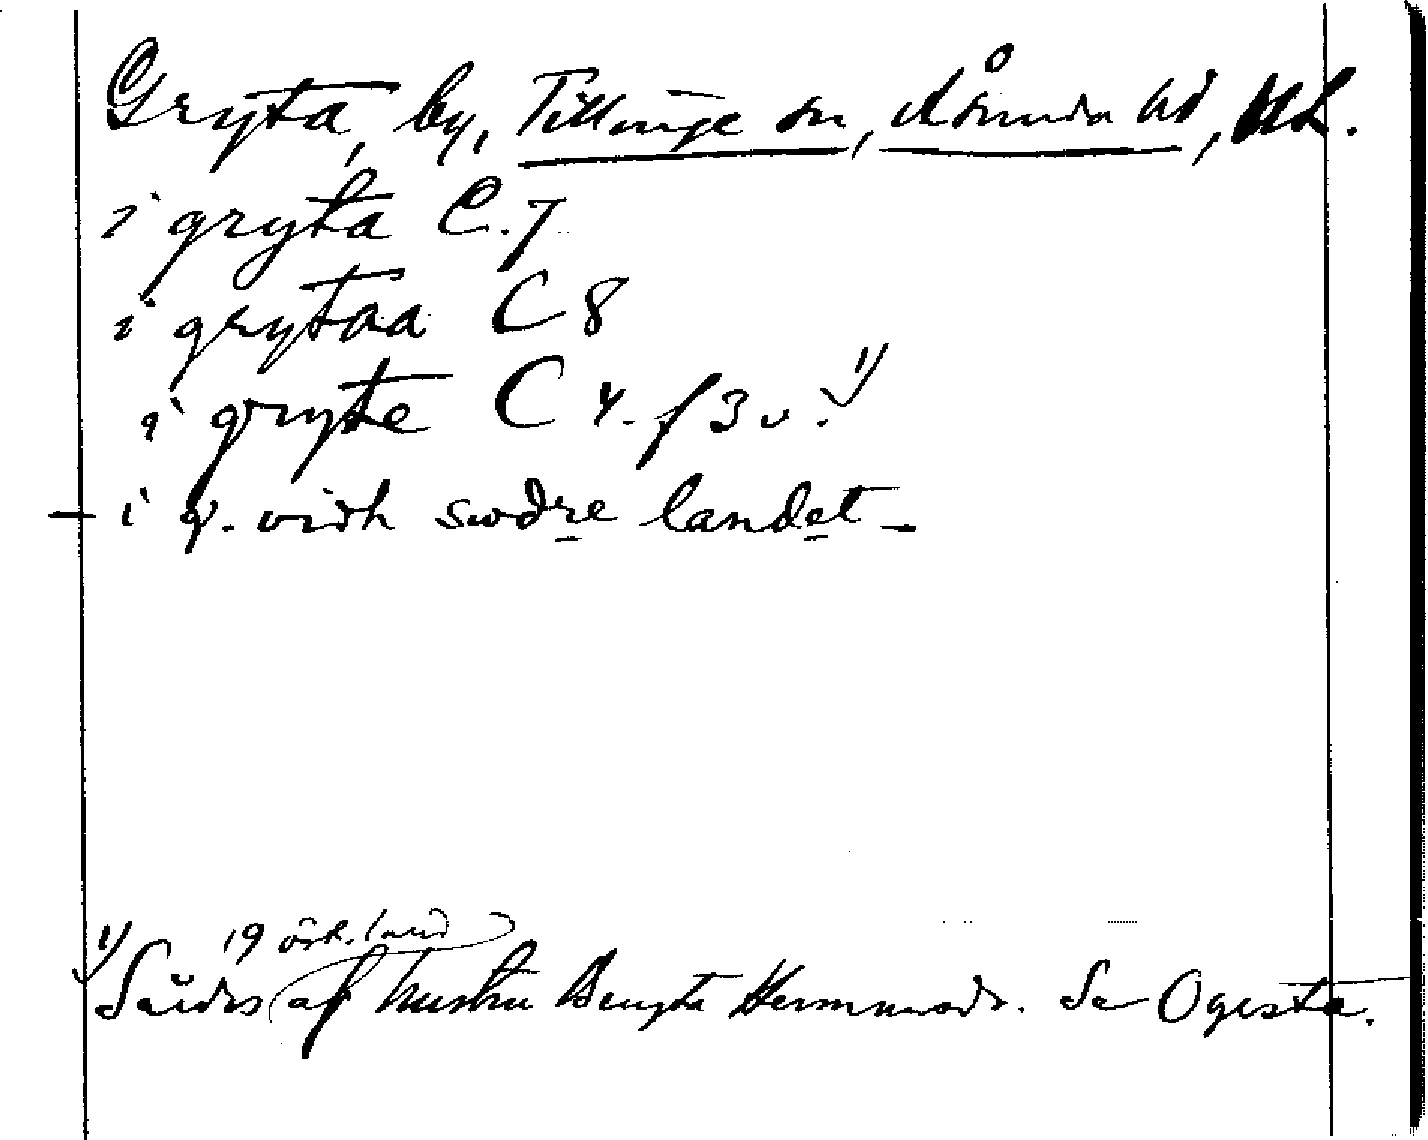 Gryta, by, Tillinge sn, Åsunda hd, Upl.
i gryta C.7
i grytaa C 8
i gryte C 4. f 3 v. 1/
– i g. vidh swdre landet –
19 örh. land
1/ Såldes af hustru Bengta Hermmods. Se Ogesta.